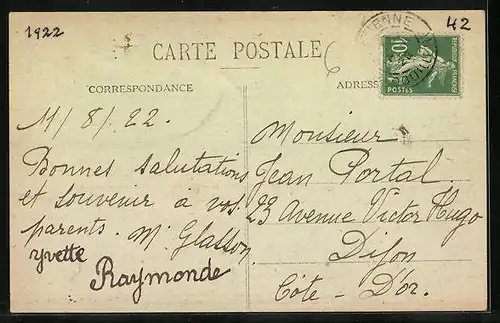 1922
42
CARTE POSTALE
CORRESPONDANCE
ADRESSE
11/8/22.
Bonnes salutations
et souvenir à vos
parents. M. Glasson
Yvette
Raymonde
Monsieur
Jean Portal.
23 Avenue Victor Hugo
Dijon
Côte-D'or.
10
POSTES
REPUBLIQUE FRANÇAISE